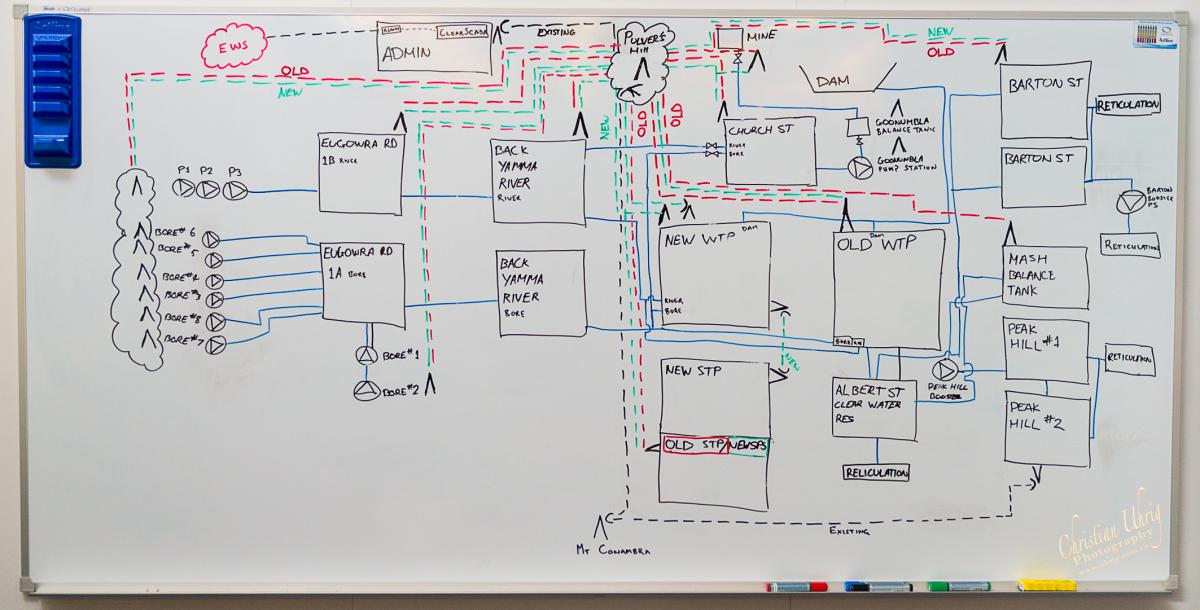 EWS
ClearScada
ADMIN
EXISTING
PULVERS
HILL
MINE
NEW
OLD
DAM
OLD
NEW
NEW
OLD
OLD
GOONUMBLA
BALANCE TANK
GOONUMBLA
PUMP STATION
BARTON ST
RETICULATION
BARTON ST
BARTON
BOOSTER
PS
RETICULATION
P1 P2 P3
EUGOWRA RD
1B RIVER
BACK
YAMMA
RIVER
RIVER
CHURCH ST
RIVER
BORE
BORE# 6
BORE# 5
BORE# 4
BORE# 3
BORE# 8
BORE# 7
EUGOWRA RD
1A BORE
BORE# 1
BORE# 2
BACK
YAMMA
RIVER
BORE
DAM
NEW WTP
RIVER
BORE
DAM
OLD WTP
BORE/RIV
MASH
BALANCE
TANK
NEW
NEW STP
OLD STP/NEWSPS
ALBERT ST
CLEAR WATER
RES
RELICULATION
PEAK HILL
BOOSTER
PEAK
HILL #1
RETICULATION
PEAK
HILL #2
EXISTING
MT CONAMBRA
Christian Uhrig
Photography